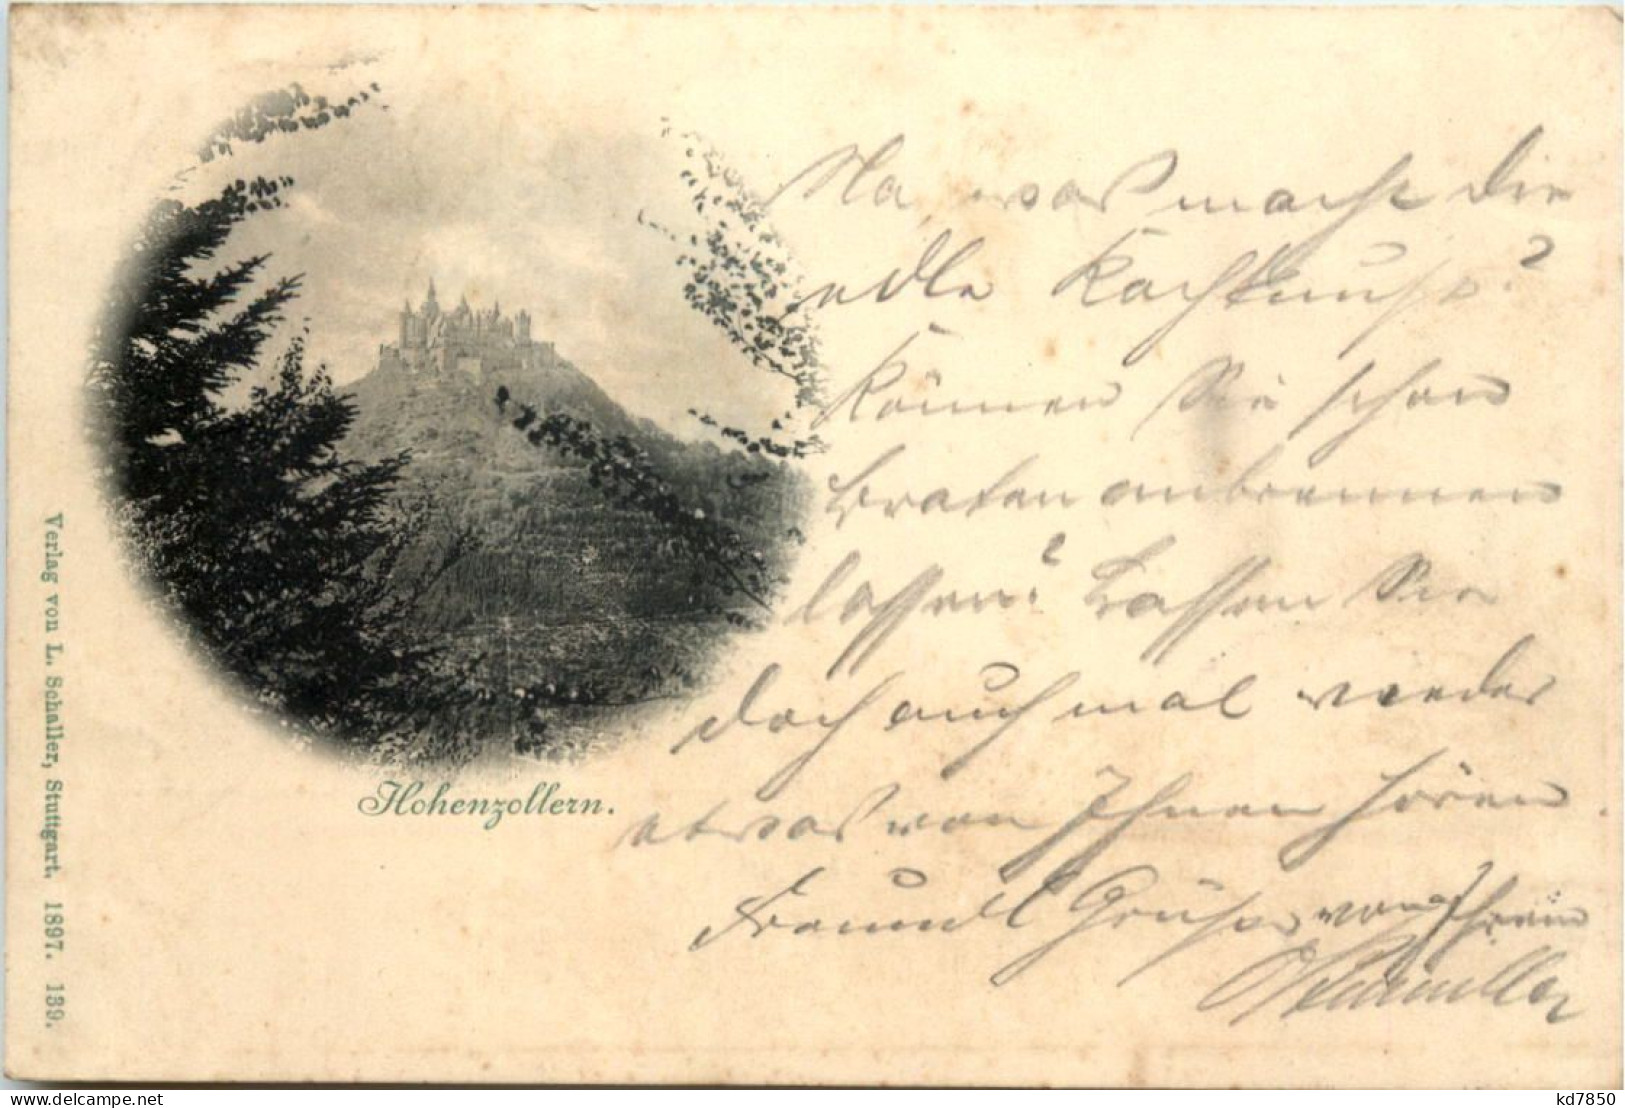 Na was macht die
edle Kochkunst?
Können Sie schon
braten anbrennen
lassen? Lassen Sie
doch auch mal wieder
etwas von Ihnen hören.
Freundl Grüße von Ihrem
Hohenzollern.
Verlag von L. Schaller, Stuttgart. 1897. 139.
delcampe.net
kd7850